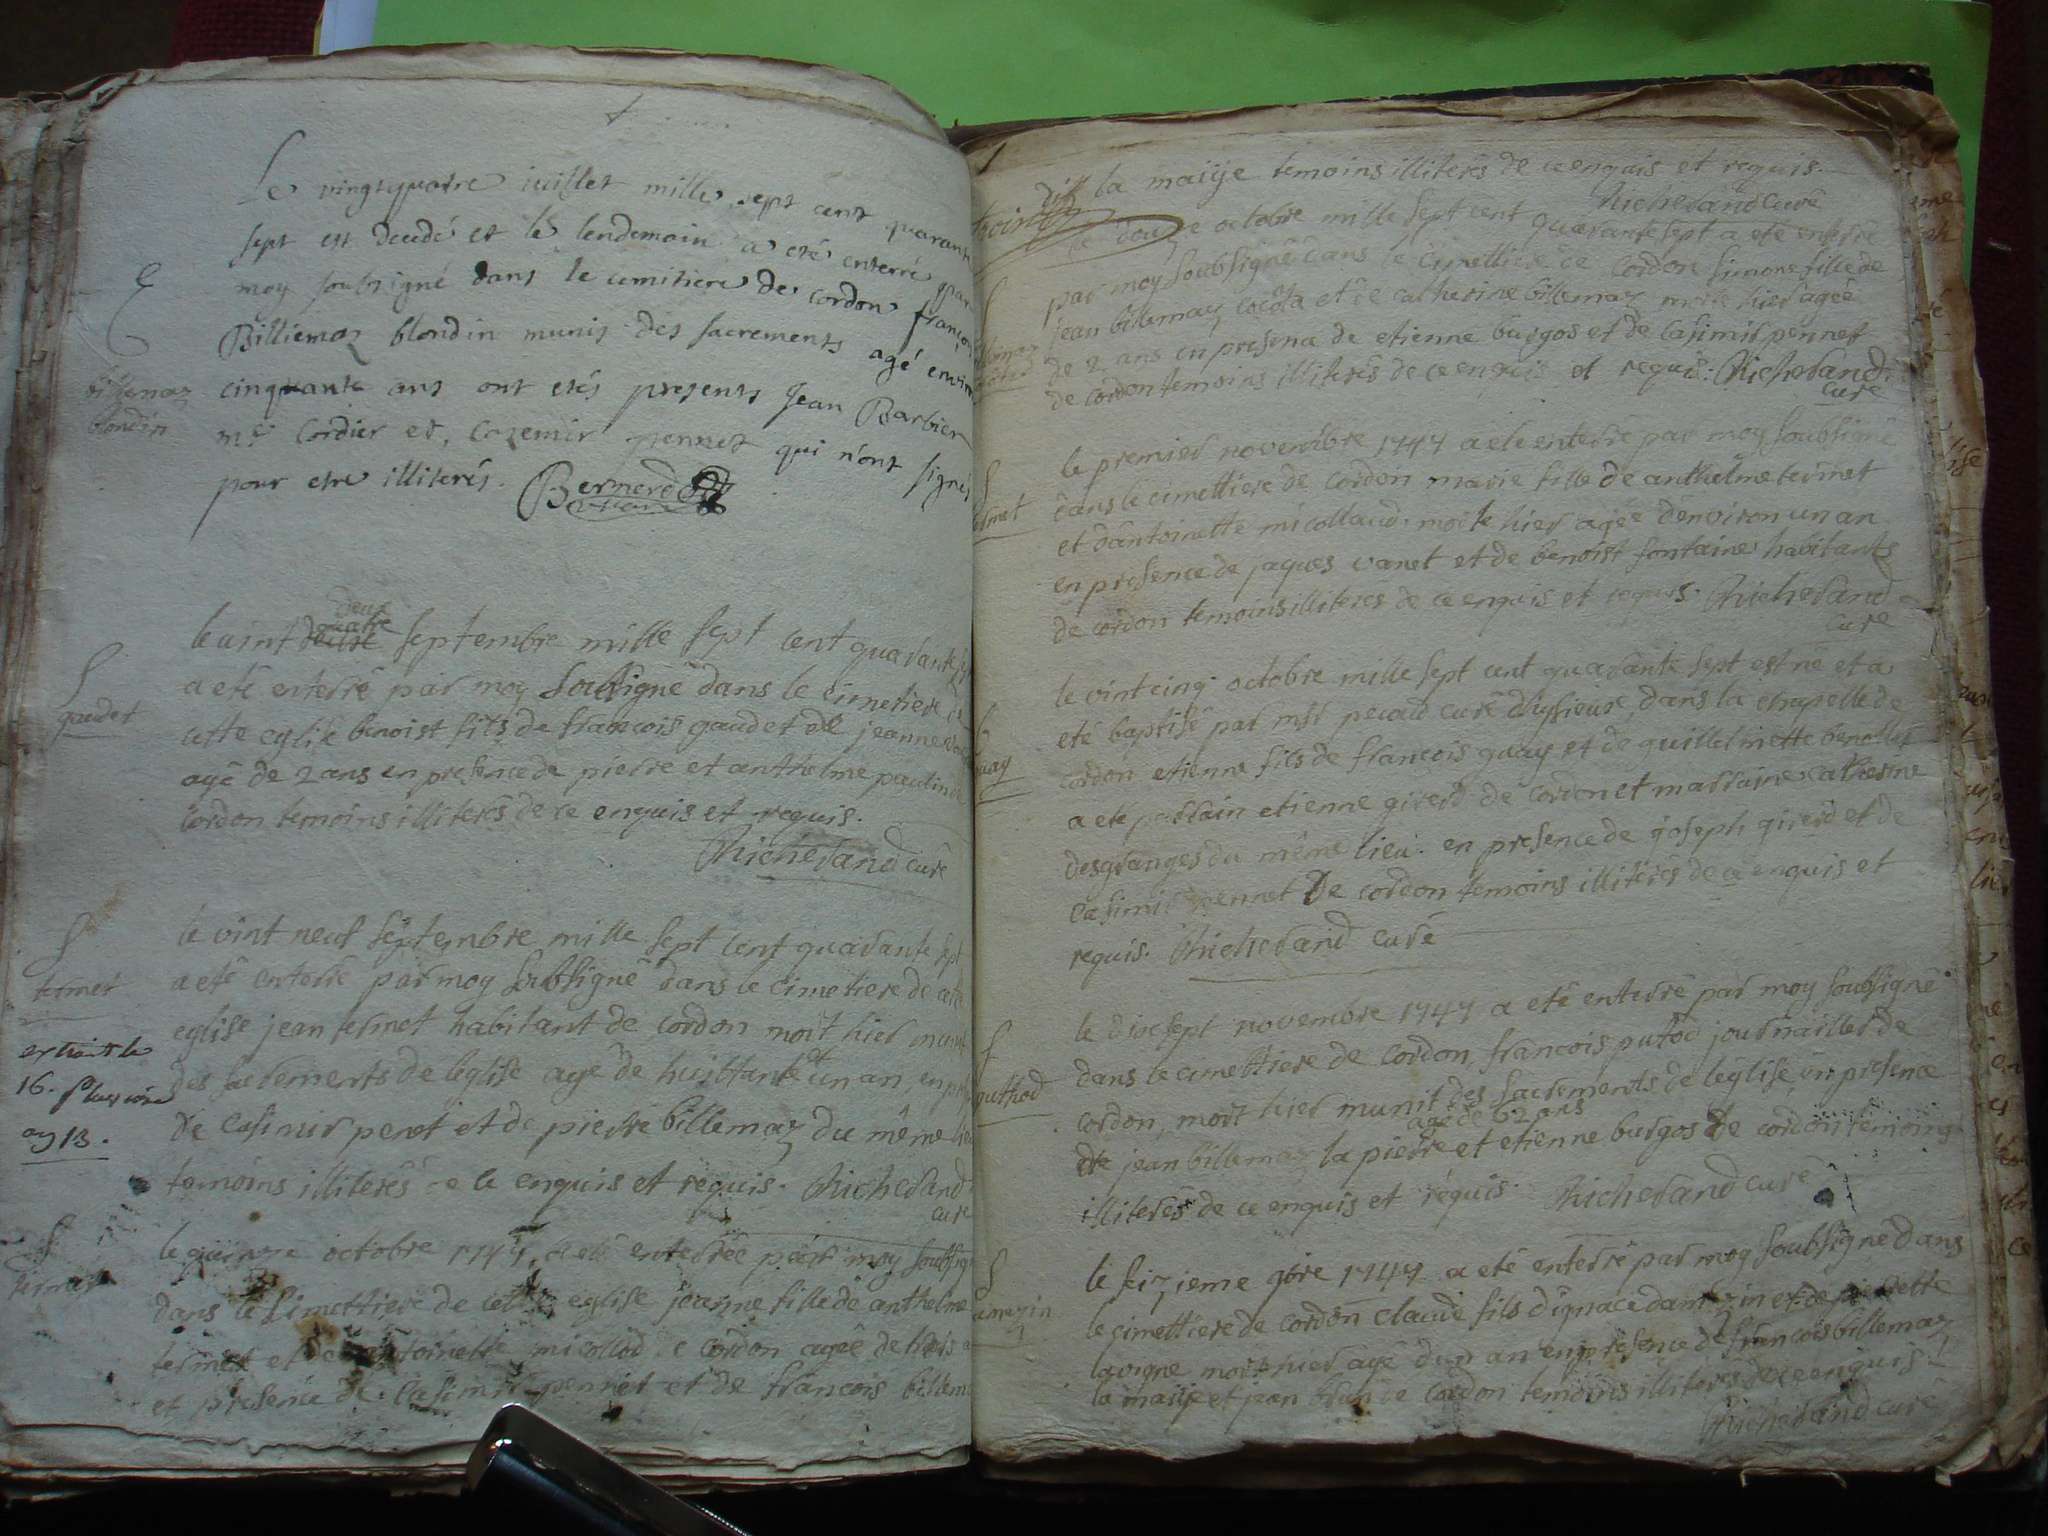 Le vingtquatre juillet mille sept cent quarante
sept est decedé et le lendemain a eté enterré par
moy soubsigné dans le cimitiere de cordon françois
Billiemaz blondin munis des sacrements agé environ
billemaz
blondin
cinquante ans ont etés presents Jean Barbier
mre Cordier et, Cazemir pennet qui n'ont signés
pour etre illiterés. Bernerd
vicaire
deux
le vint quatre septembre mille sept cent quarante sept
a eté enterré par moy soubsigné dans le cimetiere de
gaudet
cette eglise benoist fils de francois gaudet et de jeanne
agé de 2 ans en presence de pierre et anthelme paulin de
cordon temoins illiterés de ce enquis et requis.
Richerand curé
le vint neuf septembre mille sept cent quarante sept
a eté enterré par moy soubsigné dans le cimetiere de cette
termet
eglise jean termet habitant de cordon mort hier munit
extrait le
16. pluviose
an 13.
des sacrements de leglise agé de huittante et un an, en presence
de Casimir penet et de pierre billemaz du même lieu
temoins illiterés de ce enquis et requis. Richerand
curé
le quinze octobre 1747. a eté enterrée par moy soubsigné
termet
dans le Cimettiere de cette eglise jeanne fille de anthelme
termet et de antoinette micollod de cordon agée de trois
et presence de Casimir pennet et de francois billemaz
dit la maiije temoins illiterés de ce enquis et requis.
Richerand curé
le douze octobre mille sept cent quarante sept a eté enterré
par moy soubsigné dans le cimettiere de cordon simone fille de
jean billemaz cocota et de catherine billemaz morte hier agée
de 2 ans en presence de etienne burgos et de casimir pennet
de cordon temoins illiterés de ce enquis et requis. Richerand
curé
le premier novembre 1747 a eté enterré par moy soubsigné
termet
dans le cimettiere de cordon marie fille de anthelme termet
et dantoinette micollaud. morte hier agée denviron un an
en presence de jaques vanet et de benoist fontaine habitants
de cordon temoins illiteres de ce enquis et requis. Richerand
curé
le vintcinq octobre mille sept cent quarante sept est né et a
eté baptisé par msr pecaud curé dizieure, dans la chapelle de
guay
cordon etienne fils de francois guay et de guillelmette
a ete parrain etienne girerd de cordon et marraine catherine
desgranges du même lieu. en presence de joseph girerd et de
Casimir pennet de cordon temoins illiterés de ce enquis et
requis. Richerand curé
le dixsept novembre 1747 a eté enterré par moy soubsigné
puthod
dans le cimettiere de cordon, francois putod journaillier de
cordon, mort hier munit des sacrements de leglise, en presence
agé de 62 ans
de jean billemaz la pierre et etienne burgos de cordon temoins
illiterés de ce enquis et requis. Richerand curé
le seizieme 9bre 1747 a eté enterré par moy soubsigné dans
le cimettiere de cordon claude fils dignace damezin et de pierrette
lavigne mort hier agé dun an en presence de francois billemaz
la maije et jean de cordon temoins illiterés de ce enquis
Richerand curé